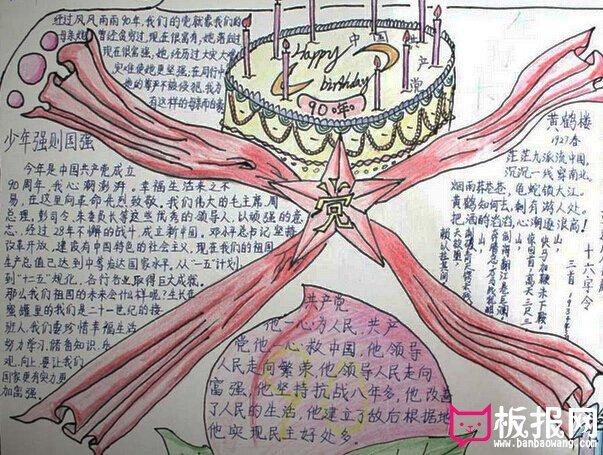 经过风风雨雨90年,我们的党就像我们的
Happy
birthday
中国共产党
90周年
党
少年强则国强
今年是中国共产党成立
90周年,我心潮澎湃。幸福生活来之不
易,在这里向革命先烈致敬。我们伟大的毛主席,周
总理,彭司令,朱委员长等这些优秀的领导人,以顽强的意
志,经过28年不懈的战斗,成立新中国。邓小平总书记坚持
改革开放,建设有中国特色的社会主义,现在我们的祖国
生产总值已达到中等发达国家水平。从“一五”计划
到“十二五”规化,各行各业取得巨大成就。
那么我们祖国的未来会什样呢?生长在
蜜罐里的我们是二十一世纪的接
班人,我们要珍惜幸福生活
努力学习,储备知识,乐
观,向上,要让我们
国家更有实力更
加富强。
黄鹤楼
1927春
茫茫九派流中国,
沉沉一线穿南北。
烟雨莽苍苍,龟蛇锁大江。
黄鹤知何去,剩有游人处。
把酒酹滔滔,心潮逐浪高!
十六字令
三首
山,
快马加鞭未下鞍,
惊回首,离天三尺三
山,
山,
共产党
他一心为人民,共产
党他一心救中国,他领导
人民走向繁荣,他领导人民走向
富强,他坚持抗战八年多,他改善
了人民的生活,他建立了敌后根据地
他实现民主好处多。
板报网
www.banbaowang.com